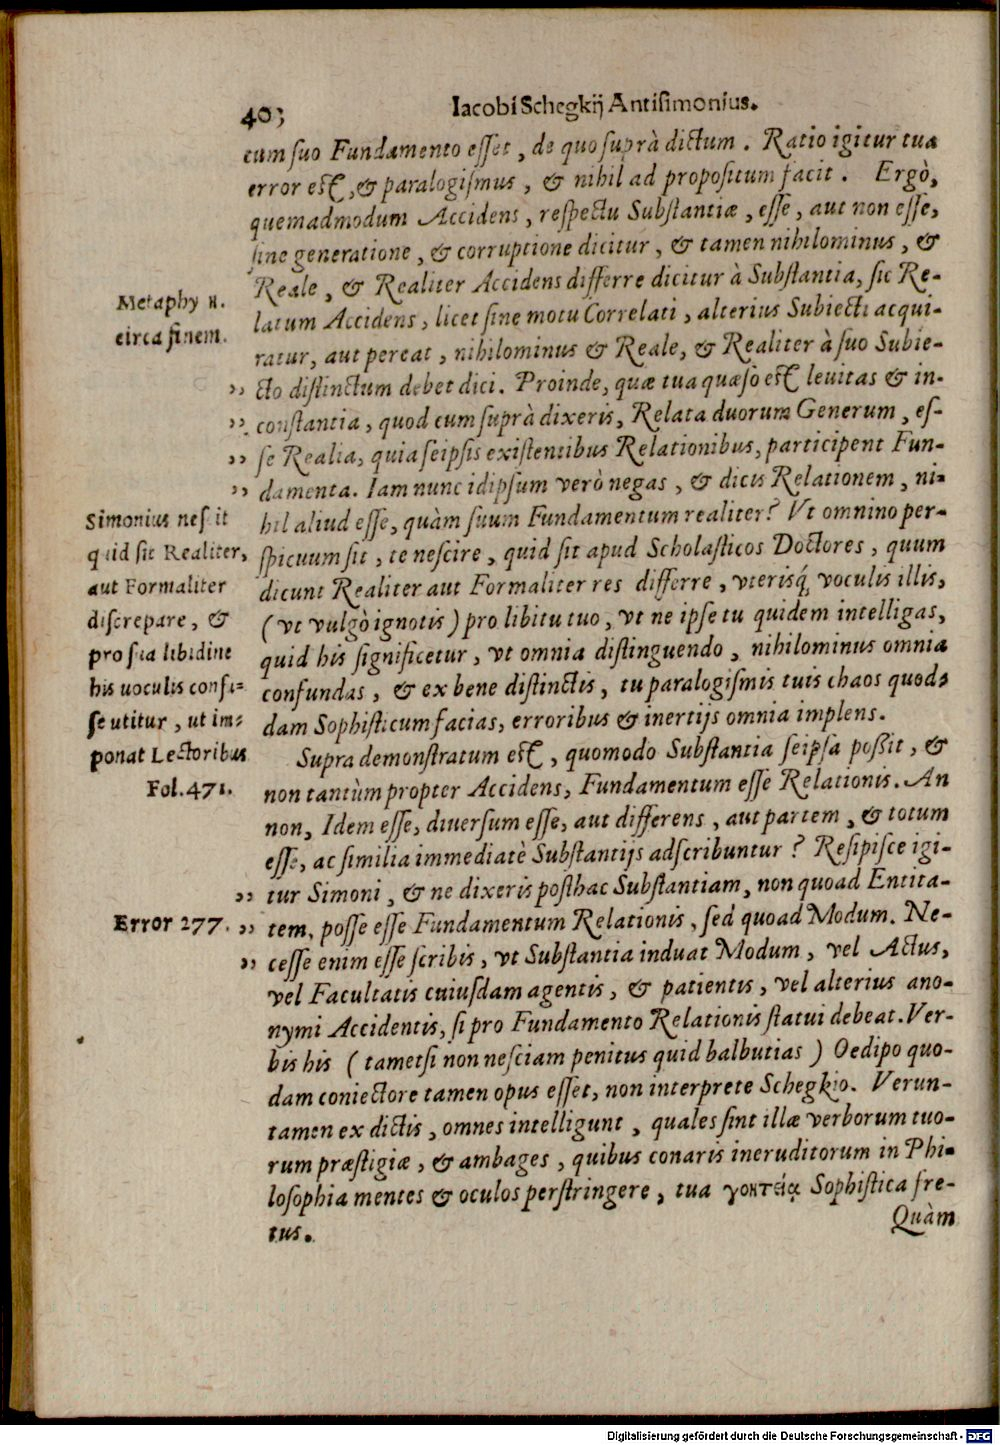 403 Iacobi Schegkij Antisimonius.
cum suo Fundamento esset, de quo suprà dictum. Ratio igitur tua
error est, & paralogismus, & nihil ad propositum facit. Ergò,
quemadmodum Accidens, respectu Substantiæ, esse, aut non esse,
sine generatione, & corruptione dicitur, & tamen nihilominus, &
Reale, & Realiter Accidens differre dicitur à Substantia, sic Re-
Metaphy 11.
circa finem.
latum Accidens, licet sine motu Correlati, alterius Subiecti acqui-
ratur, aut pereat, nihilominus & Reale, & Realiter à suo Subie-
„ cto distinctum debet dici. Proinde, quæ tua quæso est levitas & in-
„ constantia, quod cum suprà dixeris, Relata duorum Generum, es-
„ se Realia, quia seipsis existentibus Relationibus, participent Fun-
„ damenta. Iam nunc idipsum verò negas, & dicis Relationem, ni-
hil aliud esse, quàm suum Fundamentum realiter? Vt omnino per-
spicuum sit, te nescire, quid sit apud Scholasticos Doctores, quum
dicunt Realiter aut Formaliter res differre, vterisq́ voculis illis,
(vt vulgò ignotis) pro libitu tuo, vt ne ipse tu quidem intelligas,
quid his significetur, vt omnia distinguendo, nihilominus omnia
confundas, & ex bene distinctis, tu paralogismis tuis chaos quod-
dam Sophisticum facias, erroribus & inertijs omnia implens.
Simonius nescit
quid sit Realiter,
aut Formaliter
discrepare, &
pro sua libidine
his uoculis confu-
se utitur, ut im-
ponat Lectoribus
Fol. 471.
Supra demonstratum est, quomodo Substantia seipsa possit, &
non tantùm propter Accidens, Fundamentum esse Relationis. An
non, Idem esse, diuersum esse, aut differens, aut partem, & totum
esse, ac similia immediatè Substantijs adscribuntur? Resipisce igi-
„ tur Simoni, & ne dixeris posthac Substantiam, non quoad Entita-
Error 277. „ tem, posse esse Fundamentum Relationis, sed quoad Modum. Ne-
„ cesse enim esse scribis, vt Substantia induat Modum, vel Actus,
vel Facultatis cuiusdam agentis, & patientis, vel alterius ano-
nymi Accidentis, si pro Fundamento Relationis statui debeat. Ver-
bis his (tametsi non nesciam penitus quid balbutias) Oedipo quo-
dam coniectore tamen opus esset, non interprete Schegkio. Verun-
tamen ex dictis, omnes intelligunt, quales sint illæ verborum tuo-
rum præstigiæ, & ambages, quibus conaris ineruditorum in Phi-
losophia mentes & oculos perstringere, tua γοητείᾳ Sophistica fre-
tus.
Quàm
Digitalisierung gefördert durch die Deutsche Forschungsgemeinschaft - DFG